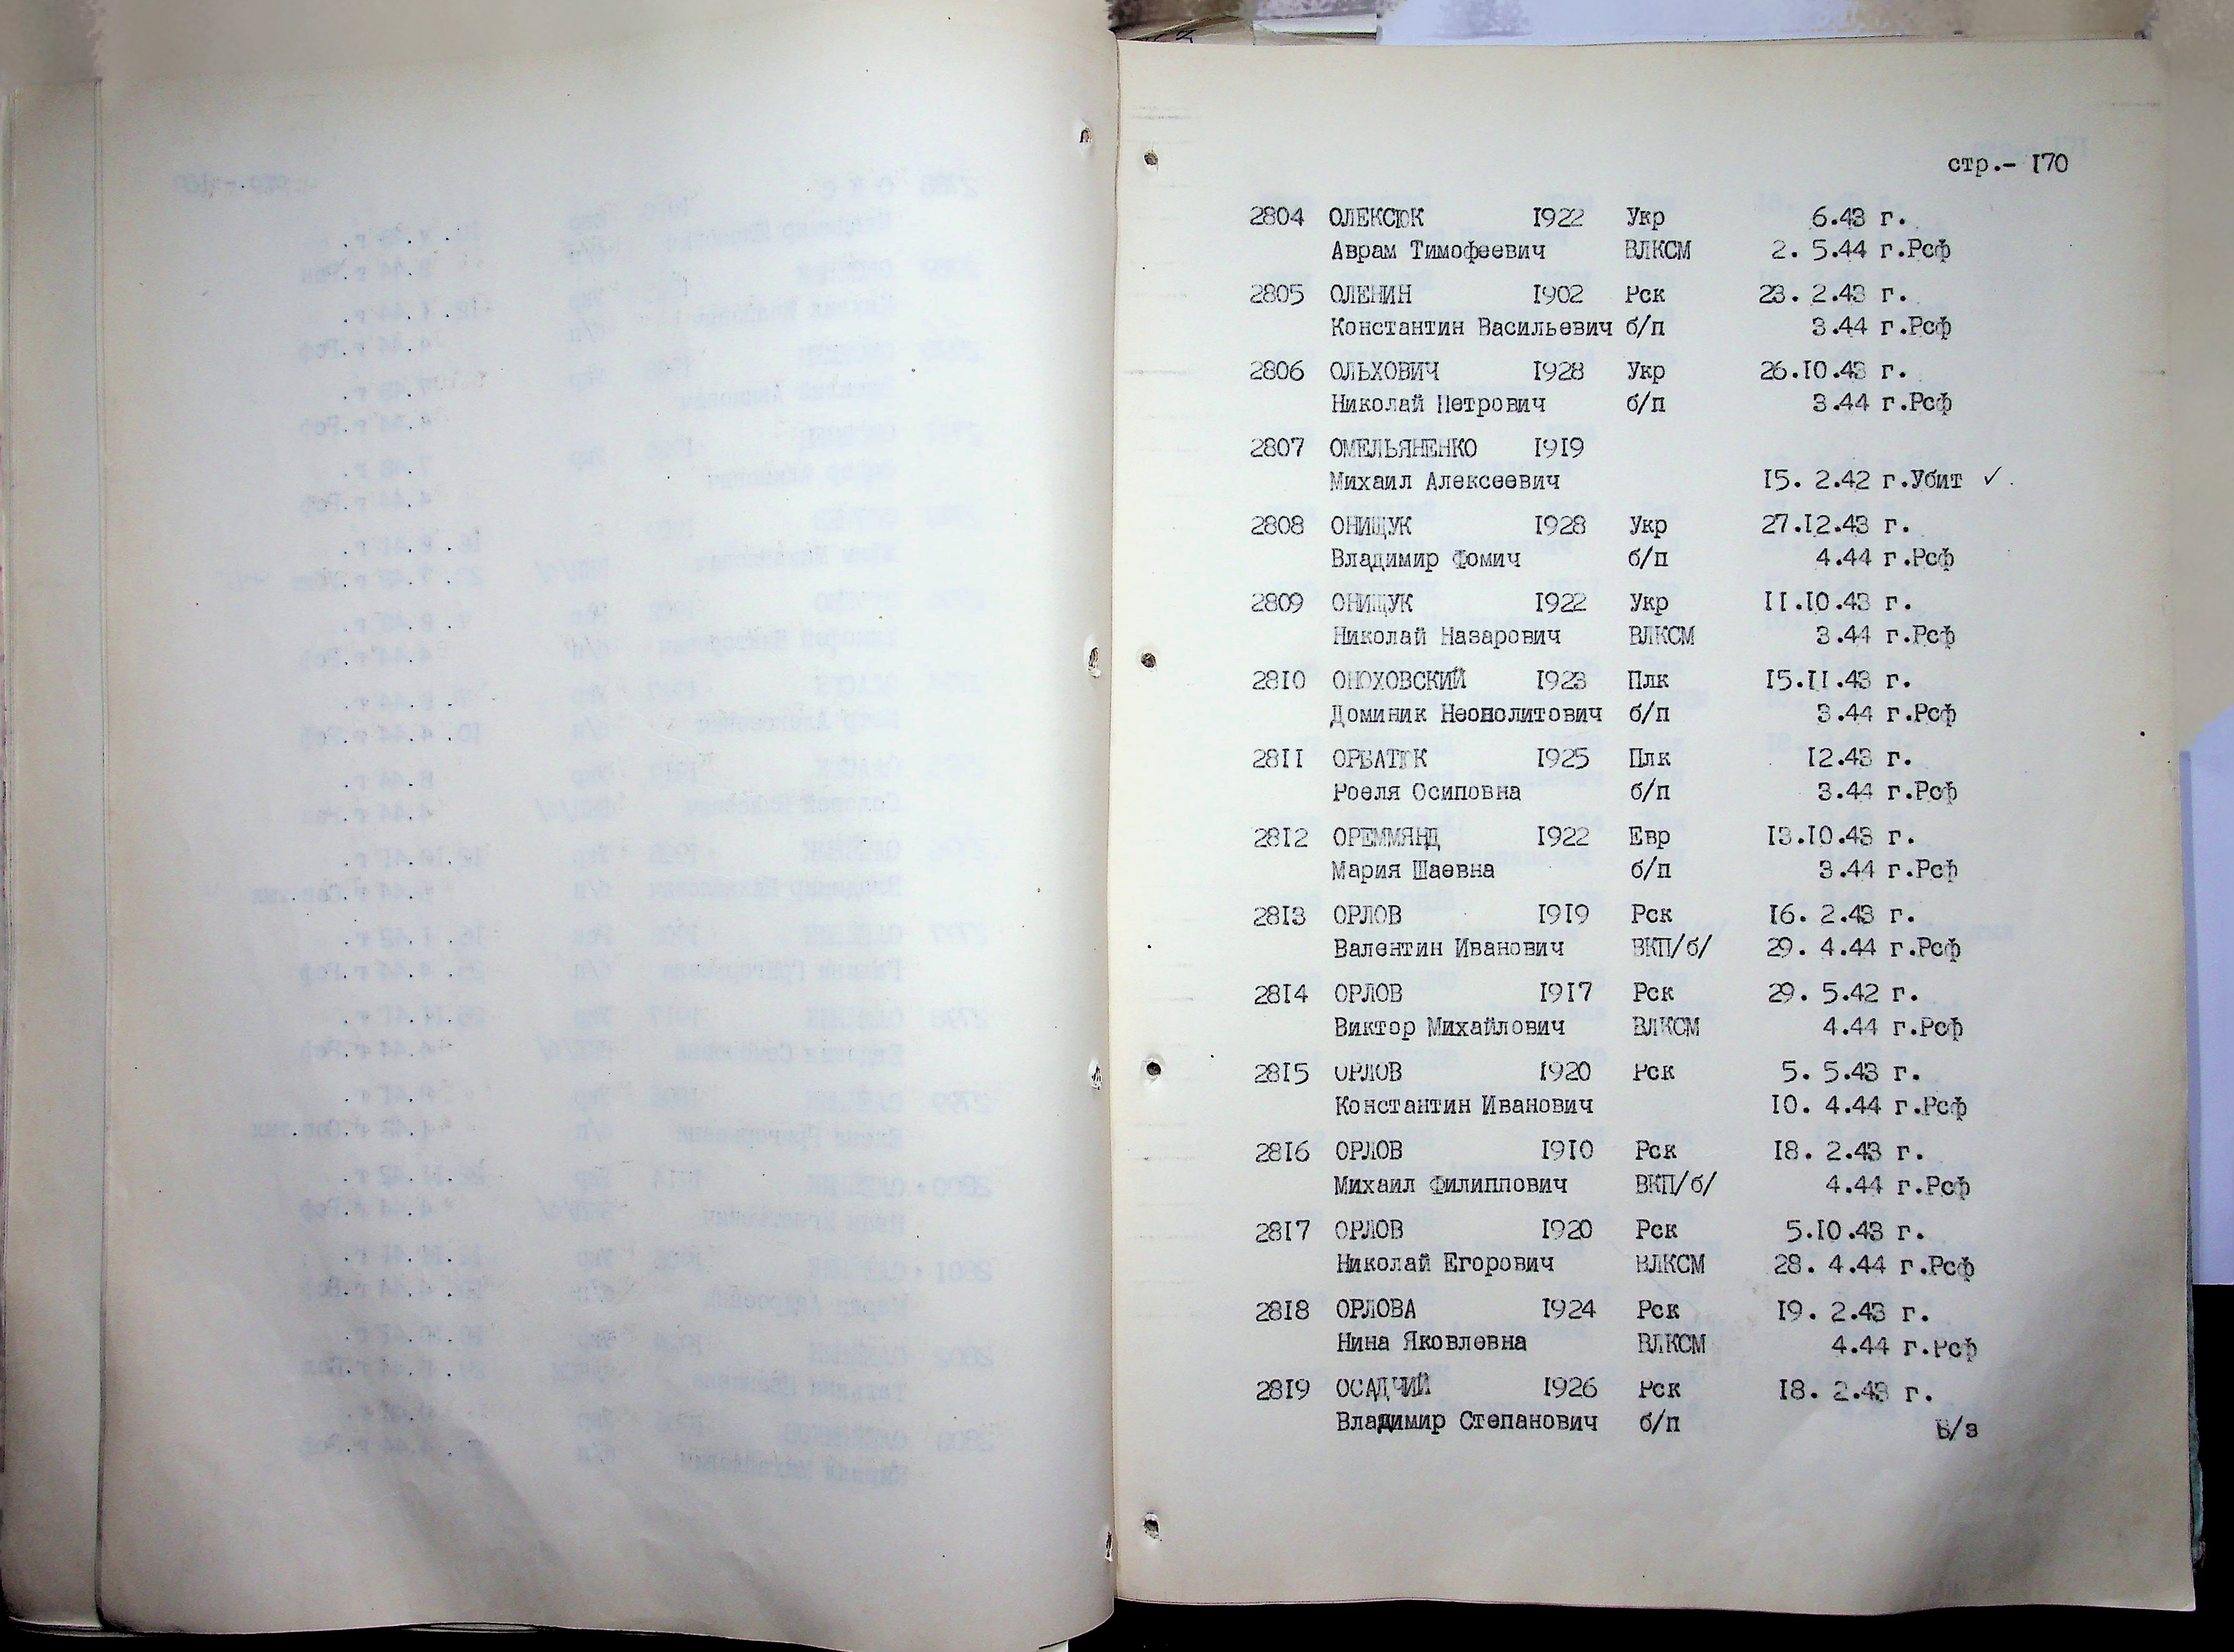 стр.- 170
2804 ОЛЕКСЮК 1922 Укр 6.43 г.
Аврам Тимофеевич ВЛКСМ 2. 5.44 г.Рсф
2805 ОЛЕНИН 1902 Рск 23. 2.43 г.
Константин Васильевич б/п 3.44 г.Рсф
2806 ОЛЬХОВИЧ 1928 Укр 26.10.43 г.
Николай Петрович б/п 3.44 г.Рсф
2807 ОМЕЛЬЯНЕНКО 1919
Михаил Алексеевич 15. 2.42 г.Убит ✓
2808 ОНИЩУК 1928 Укр 27.12.43 г.
Владимир Фомич б/п 4.44 г.Рсф
2809 ОНИЩУК 1922 Укр 11.10.43 г.
Николай Назарович ВЛКСМ 3.44 г.Рсф
2810 ОНОХОВСКИЙ 1923 Плк 15.11.43 г.
Доминик Неонолитович б/п 3.44 г.Рсф
2811 ОРБАТЮК 1925 Плк 12.43 г.
Роеля Осиповна б/п 3.44 г.Рсф
2812 ОРЕММЯНД 1922 Евр 13.10.43 г.
Мария Шаевна б/п 3.44 г.Рсф
2813 ОРЛОВ 1919 Рск 16. 2.43 г.
Валентин Иванович ВКП/б/ 29. 4.44 г.Рсф
2814 ОРЛОВ 1917 Рск 29. 5.42 г.
Виктор Михайлович ВЛКСМ 4.44 г.Рсф
2815 ОРЛОВ 1920 Рск 5. 5.43 г.
Константин Иванович 10. 4.44 г.Рсф
2816 ОРЛОВ 1910 Рск 18. 2.43 г.
Михаил Филиппович ВКП/б/ 4.44 г.Рсф
2817 ОРЛОВ 1920 Рск 5.10.43 г.
Николай Егорович ВЛКСМ 28. 4.44 г.Рсф
2818 ОРЛОВА 1924 Рск 19. 2.43 г.
Нина Яковлевна ВЛКСМ 4.44 г.Рсф
2819 ОСАДЧИЙ 1926 Рск 18. 2.43 г.
Владимир Степанович б/п Б/з